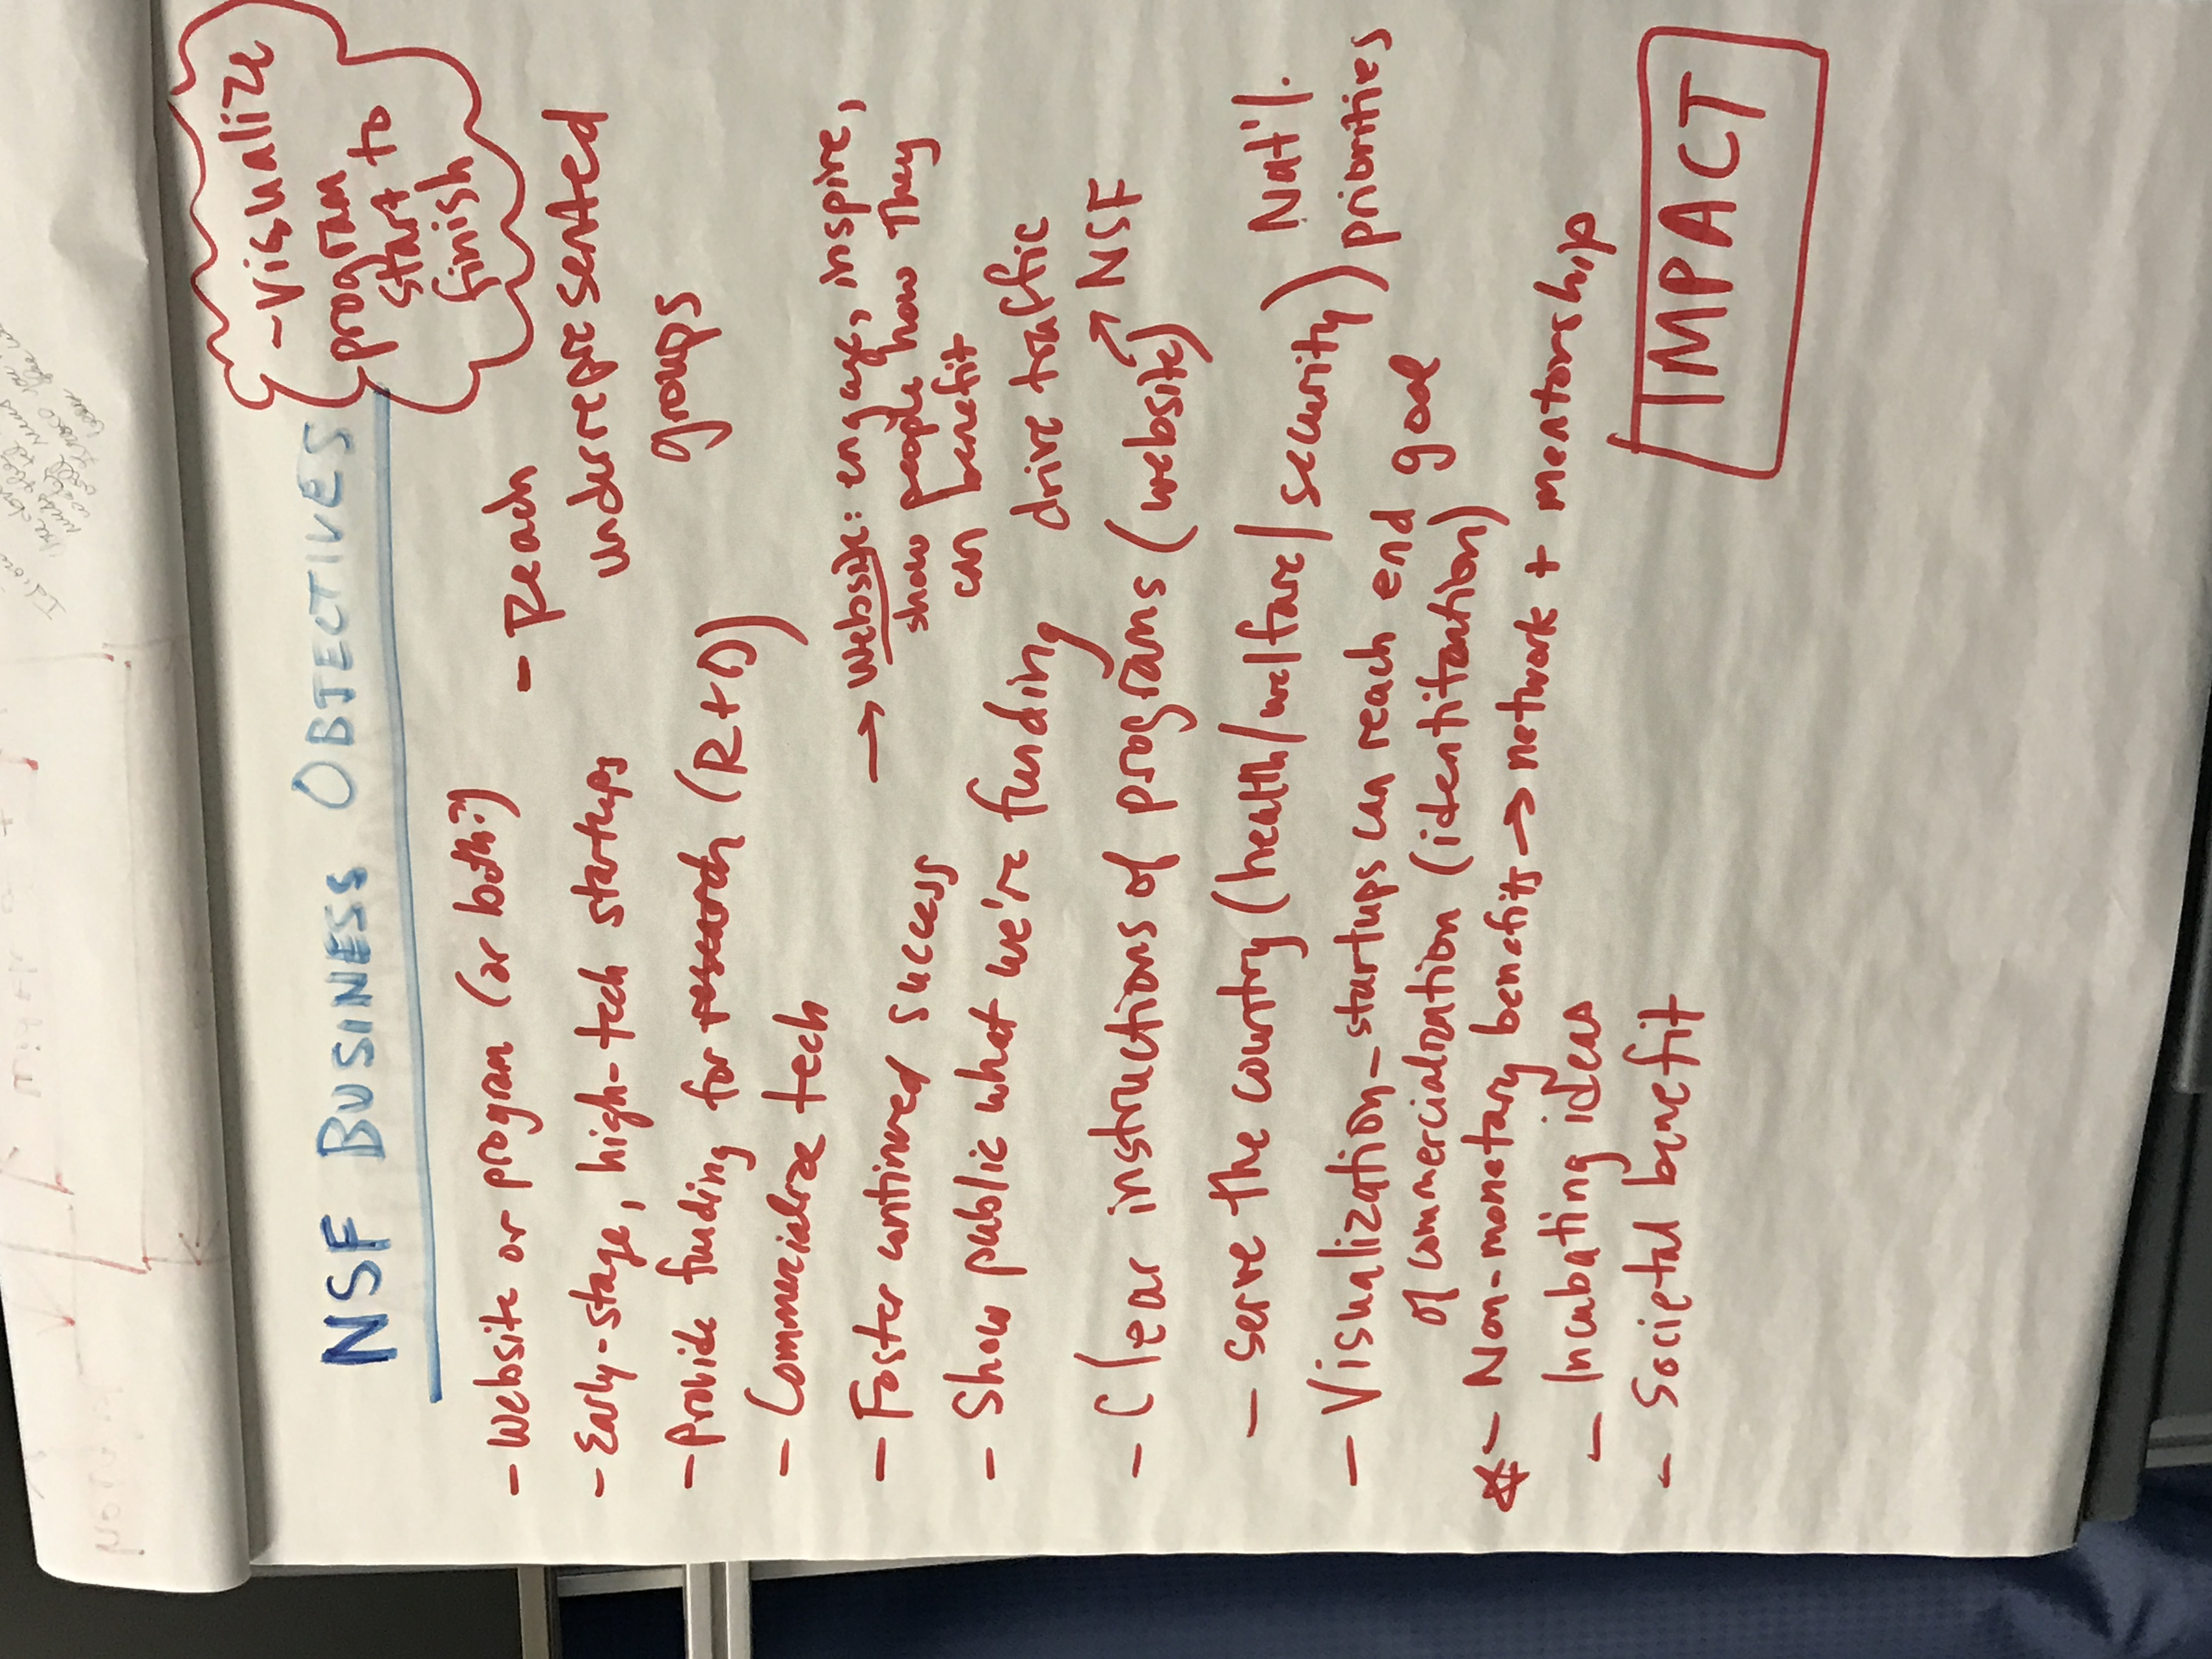 NSF BUSINESS OBJECTIVES
- visualize
program
start to
finish
- Website or program (or both?)
- Early-stage, high-tech startups
- Provide funding for research (R+D)
- Commercialize tech
- Foster continued success
- Show public what we're funding
- Clear instructions of programs (website)
- serve the country (health/welfare/security) Nat'l.
priorities
- Visualization - startups can reach end goal
of commercialization (identification)
☆ - Non-monetary benefits → network + mentorship
- Incubating ideas
- Societal benefit
- Reach
underrepresented
groups
→ Website: engage, inspire,
show people how they
can benefit
drive traffic
↗ NSF
IMPACT